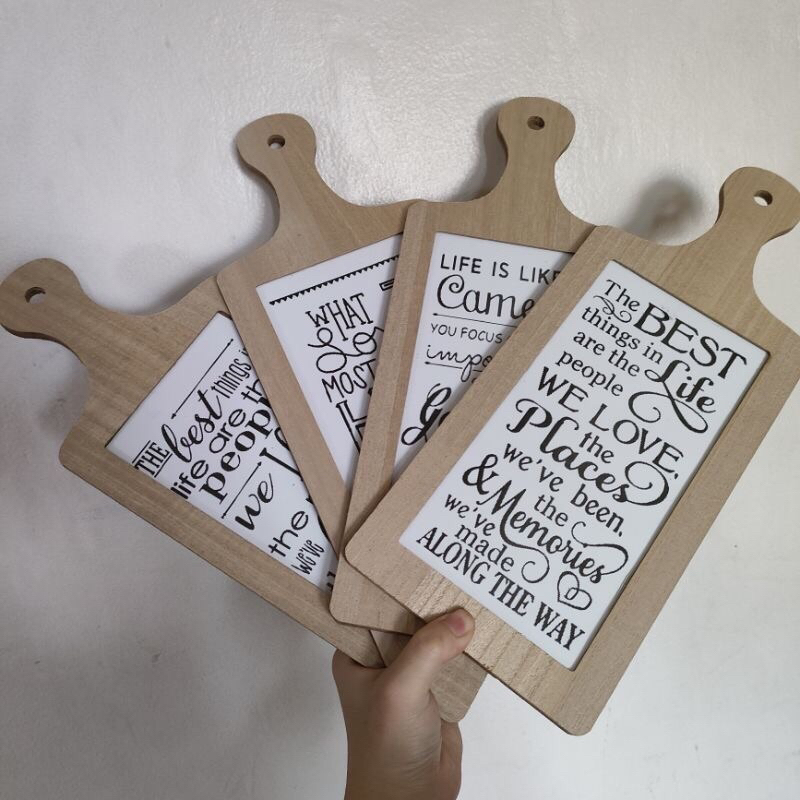 THE best things
life are
people
we
the
we've
WHAT
MOST
LIFE IS LIKE
YOU FOCUS
The BEST
things in Life
are the
people
WE LOVE,
the
Places
we've been,
& the
Memories
we've
made
ALONG THE WAY